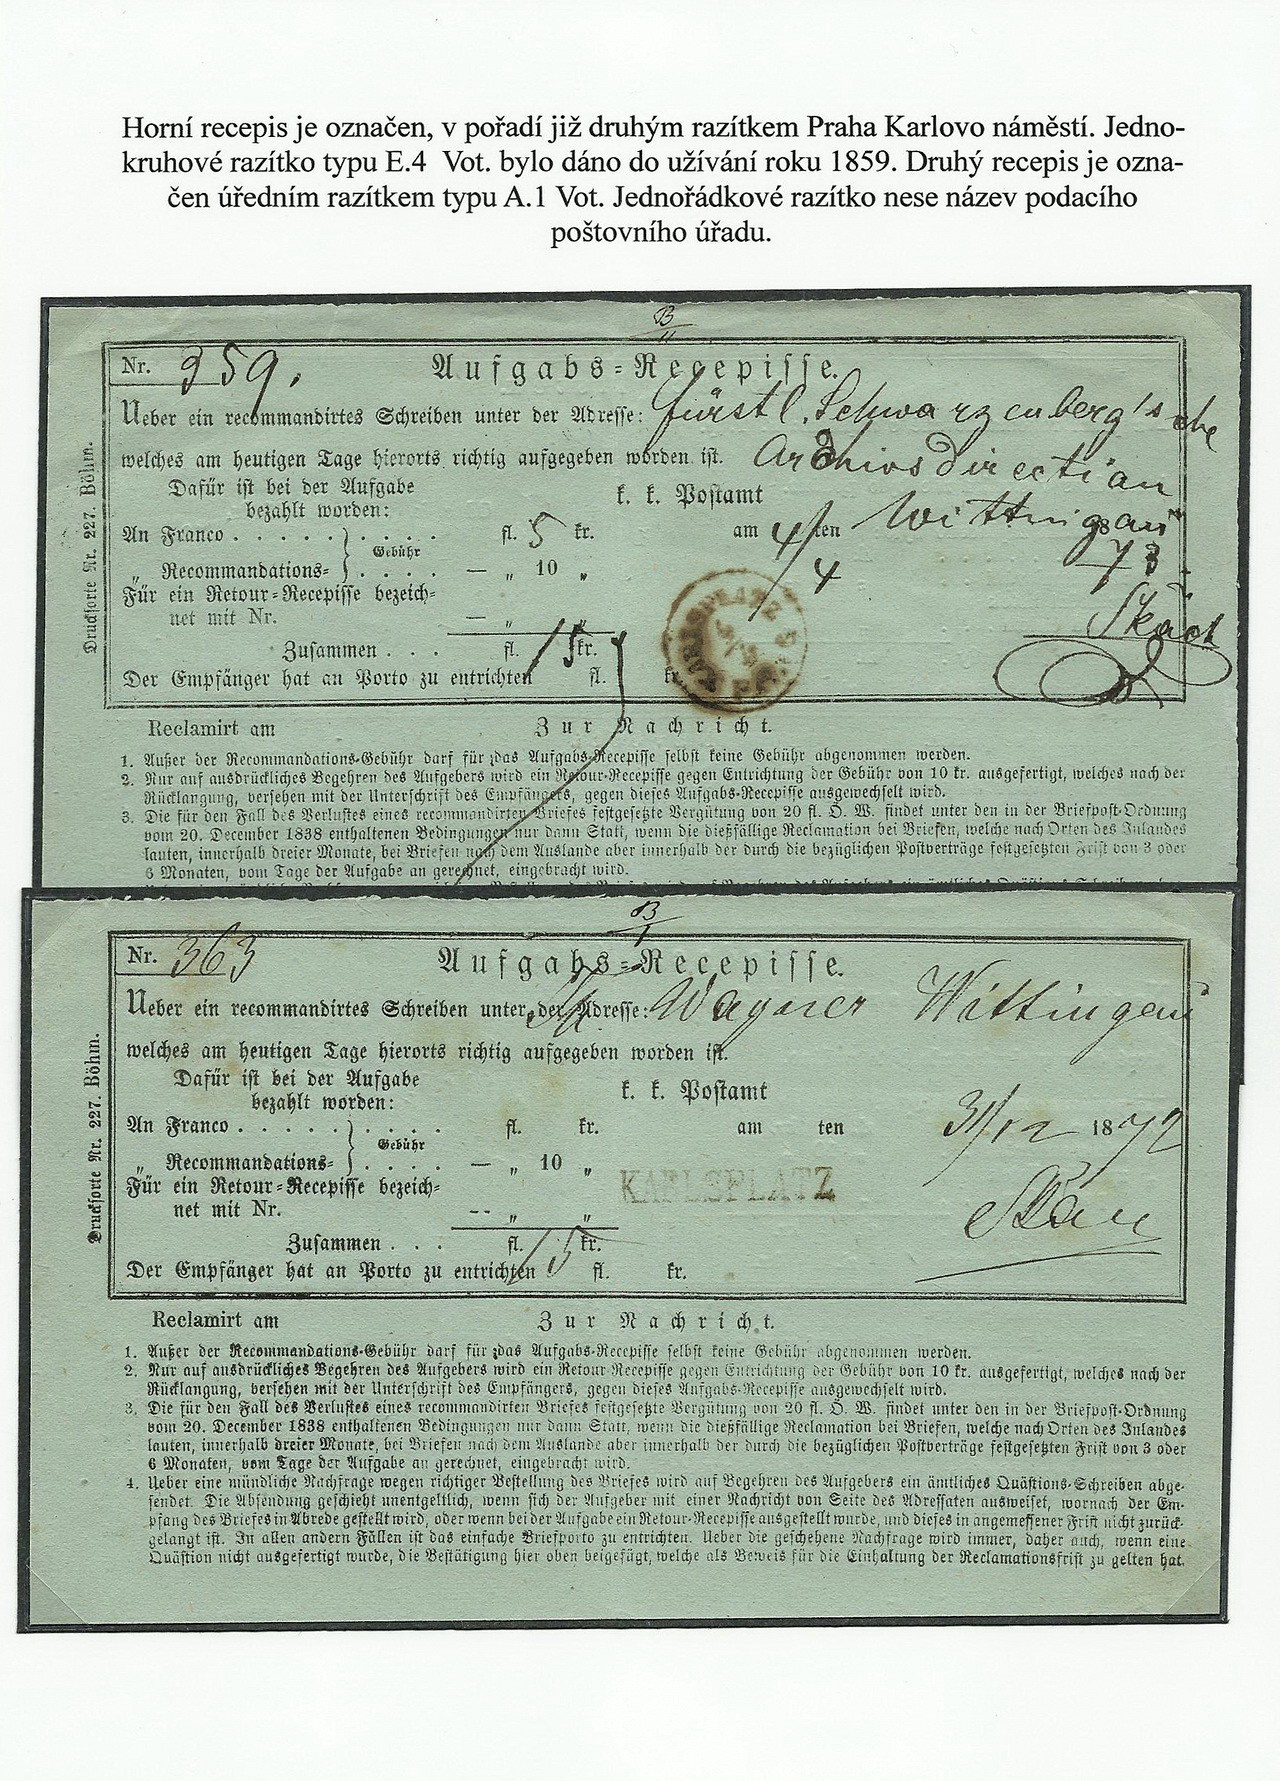 Horní recepis je označen, v pořadí již druhým razítkem Praha Karlovo náměstí. Jedno-
kruhové razítko typu E.4 Vot. bylo dáno do užívání roku 1859. Druhý recepis je ozna-
čen úředním razítkem typu A.1 Vot. Jednořádkové razítko nese název podacího
poštovního úřadu.
B/II
Nr. 359.
Aufgabs=Recepisse.
Ueber ein recommandirtes Schreiben unter der Adresse: fürstl. Schwarzenberg'sche
welches am heutigen Tage hierorts richtig aufgegeben worden ist. Archivsdirection
Dafür ist bei der Aufgabe
bezahlt worden:
k. k. Postamt
An Franco . . . . . . . . . . fl. 5 kr.
am 4/ten Wittingau
Gebühr
4 73
„ Recommandations= . . . . — „ 10 „
Für ein Retour=Recepisse bezeich=
net mit Nr. — „ „
KARLSPLATZ
PRAG
Zusammen . . . fl. 15 kr.
Der Empfänger hat an Porto zu entrichten fl. kr.
Drucksorte Nr. 227. Böhm.
Reclamirt am
Zur Nachricht.
1. Außer der Recommandations-Gebühr darf für das Aufgabs-Recepisse selbst keine Gebühr abgenommen werden.
2. Nur auf ausdrückliches Begehren des Aufgebers wird ein Retour-Recepisse gegen Entrichtung der Gebühr von 10 kr. ausgefertigt, welches nach der
Rücklangung, versehen mit der Unterschrift des Empfängers, gegen dieses Aufgabs-Recepisse ausgewechselt wird.
3. Die für den Fall des Verlustes eines recommandirten Briefes festgesetzte Vergütung von 20 fl. O. W. findet unter den in der Briefpost-Ordnung
vom 20. December 1838 enthaltenen Bedingungen nur dann Statt, wenn die dießfällige Reclamation bei Briefen, welche nach Orten des Inlandes
lauten, innerhalb dreier Monate, bei Briefen nach dem Auslande aber innerhalb der durch die bezüglichen Postverträge festgesetzten Frist von 3 oder
6 Monaten, vom Tage der Aufgabe an gerechnet, eingebracht wird.
B/I
Nr. 363
Aufgabs=Recepisse.
Ueber ein recommandirtes Schreiben unter der Adresse: Wagner Wittingau
welches am heutigen Tage hierorts richtig aufgegeben worden ist.
Dafür ist bei der Aufgabe
bezahlt worden:
k. k. Postamt
An Franco . . . . . . . . . . fl. kr.
am ten 31/12 1872
Gebühr
„ Recommandations= . . . . — „ 10 „
KARLSPLATZ
Für ein Retour=Recepisse bezeich=
net mit Nr. -- „ „
Zusammen . . . fl. 15 kr.
Der Empfänger hat an Porto zu entrichten fl. kr.
Drucksorte Nr. 227. Böhm.
Reclamirt am
Zur Nachricht.
1. Außer der Recommandations-Gebühr darf für das Aufgabs-Recepisse selbst keine Gebühr abgenommen werden.
2. Nur auf ausdrückliches Begehren des Aufgebers wird ein Retour-Recepisse gegen Entrichtung der Gebühr von 10 kr. ausgefertigt, welches nach der
Rücklangung, versehen mit der Unterschrift des Empfängers, gegen dieses Aufgabs-Recepisse ausgewechselt wird.
3. Die für den Fall des Verlustes eines recommandirten Briefes festgesetzte Vergütung von 20 fl. O. W. findet unter den in der Briefpost-Ordnung
vom 20. December 1838 enthaltenen Bedingungen nur dann Statt, wenn die dießfällige Reclamation bei Briefen, welche nach Orten des Inlandes
lauten, innerhalb dreier Monate, bei Briefen nach dem Auslande aber innerhalb der durch die bezüglichen Postverträge festgesetzten Frist von 3 oder
6 Monaten, vom Tage der Aufgabe an gerechnet, eingebracht wird.
4. Ueber eine mündliche Nachfrage wegen richtiger Bestellung des Briefes wird auf Begehren des Aufgebers ein ämtliches Quästions-Schreiben abge-
sendet. Die Absendung geschieht unentgeltlich, wenn sich der Aufgeber mit einer Nachricht von Seite des Adressaten ausweiset, wornach der Em-
pfang des Briefes in Abrede gestellt wird, oder wenn bei der Aufgabe ein Retour-Recepisse ausgestellt wurde, und dieses in angemessener Frist nicht zurück-
gelangt ist. In allen andern Fällen ist das einfache Briefporto zu entrichten. Ueber die geschehene Nachfrage wird immer, daher auch, wenn eine
Quästion nicht ausgefertigt wurde, die Bestätigung hier oben beigefügt, welche als Beweis für die Einhaltung der Reclamationsfrist zu gelten hat.